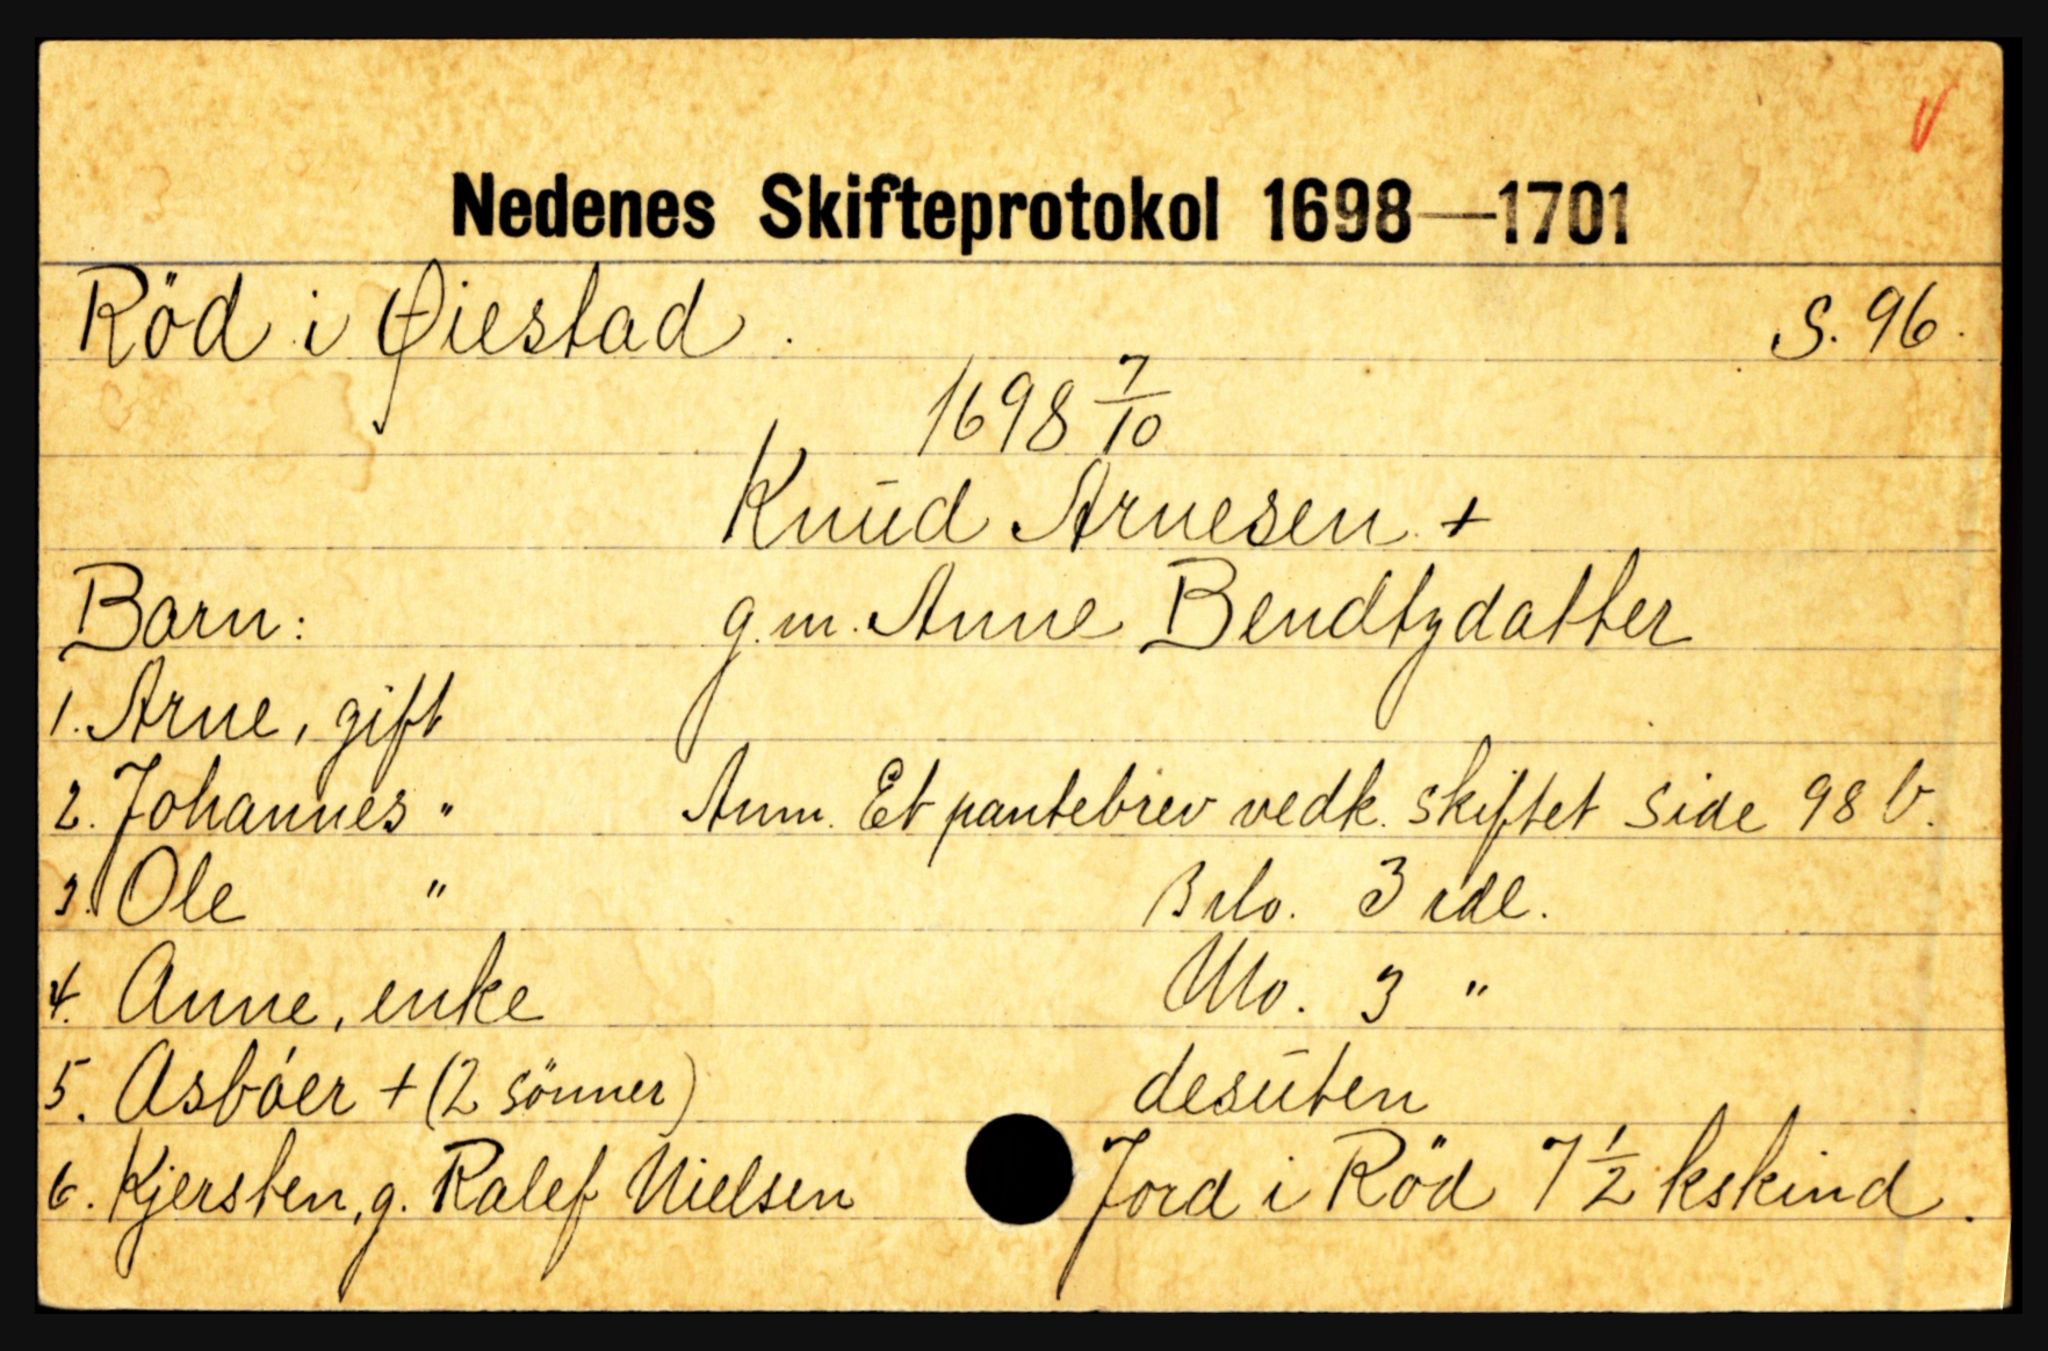 Nedenes Skifteprotokol 1698—1701
Röd i Øiestad. S. 96.
1698 7/10
Knud Arnesen +
Barn: g.m. Anne Bendtzdatter
1. Arne, gift
2. Johannes " Anm. Et pantebrev vedk. skiftet side 98 b.
3. Ole " Brlo. 3 rdl.
4. Anne, enke Ulo. 3 "
5. Asbóer + (2 sönner) desuten
6. Kjersten, g. Ralef Nielsen Jord i Röd 7 1/2 kskind.